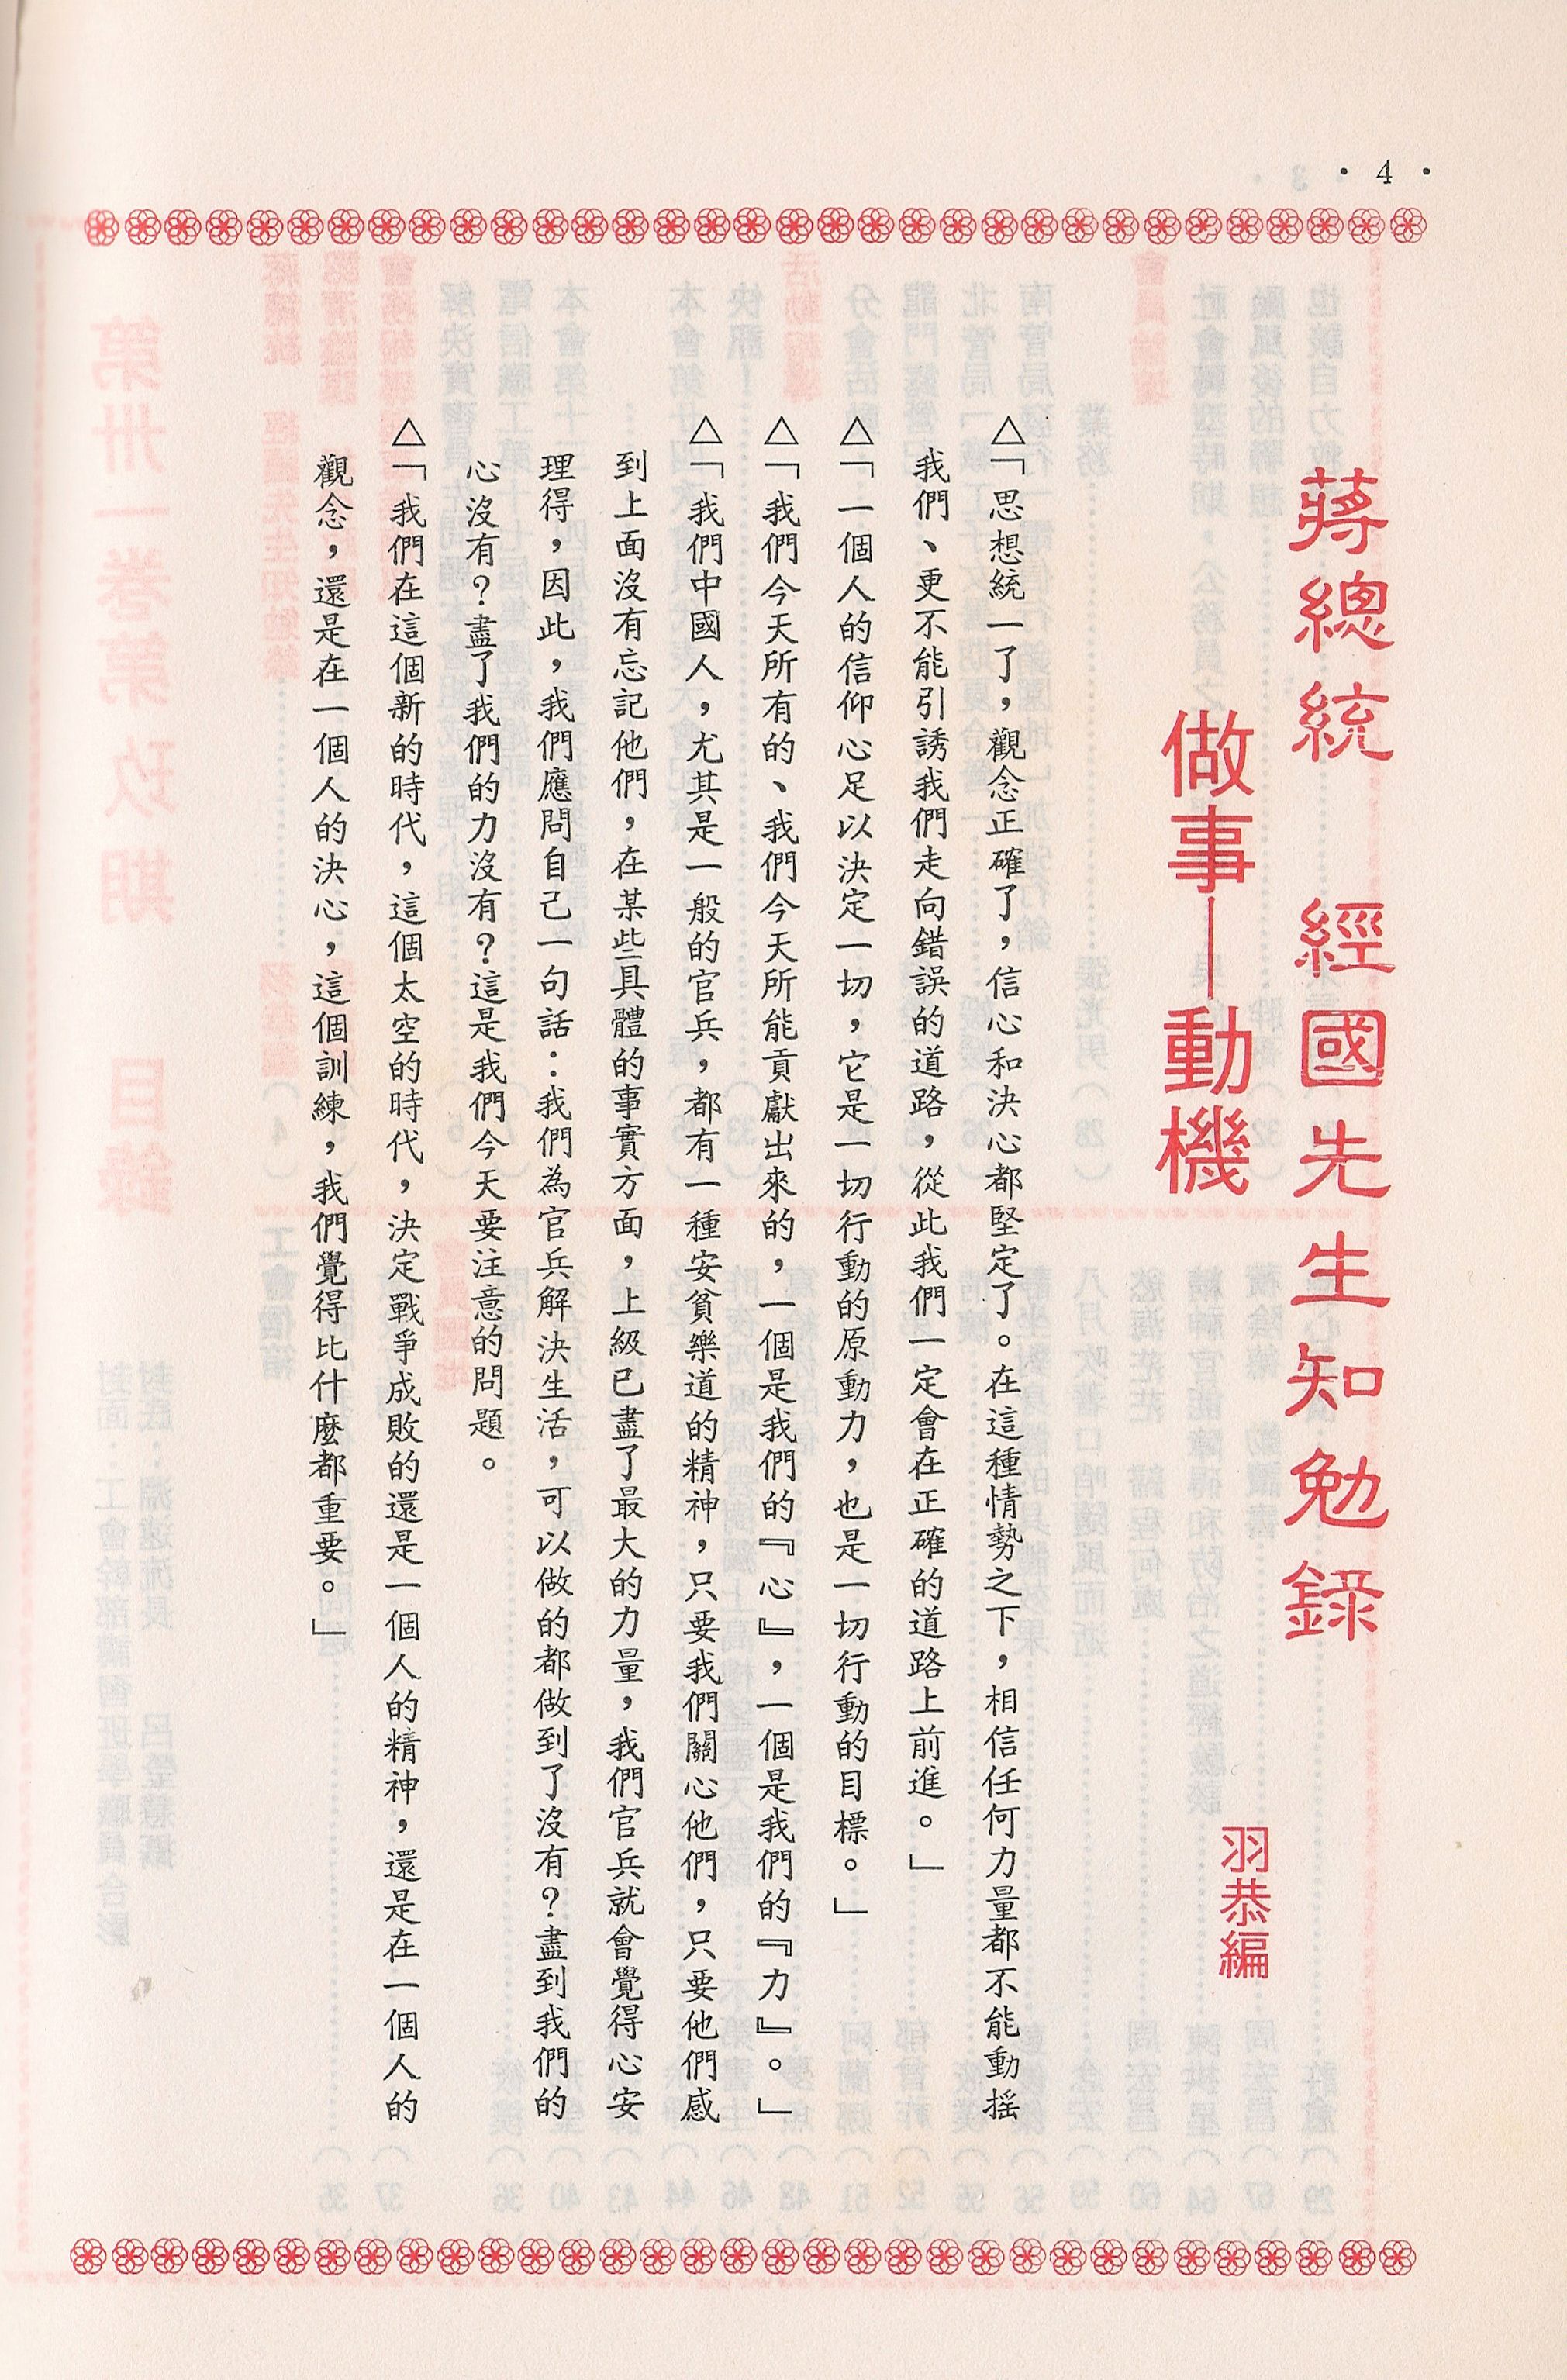 ・4・
蔣總統　經國先生知勉錄
做事—動機
羽恭編
△「思想統一了，觀念正確了，信心和決心都堅定了。在這種情勢之下，相信任何力量都不能動搖
我們、更不能引誘我們走向錯誤的道路，從此我們一定會在正確的道路上前進。」
△「一個人的信仰心足以決定一切，它是一切行動的原動力，也是一切行動的目標。」
△「我們今天所有的、我們今天所能貢獻出來的，一個是我們的『心』，一個是我們的『力』。」
△「我們中國人，尤其是一般的官兵，都有一種安貧樂道的精神，只要我們關心他們，只要他們感
到上面沒有忘記他們，在某些具體的事實方面，上級已盡了最大的力量，我們官兵就會覺得心安
理得，因此，我們應問自己一句話：我們為官兵解決生活，可以做的都做到了沒有？盡到我們的
心沒有？盡了我們的力沒有？這是我們今天要注意的問題。
△「我們在這個新的時代，這個太空的時代，決定戰爭成敗的還是一個人的精神，還是在一個人的
觀念，還是在一個人的決心，這個訓練，我們覺得比什麼都重要。」